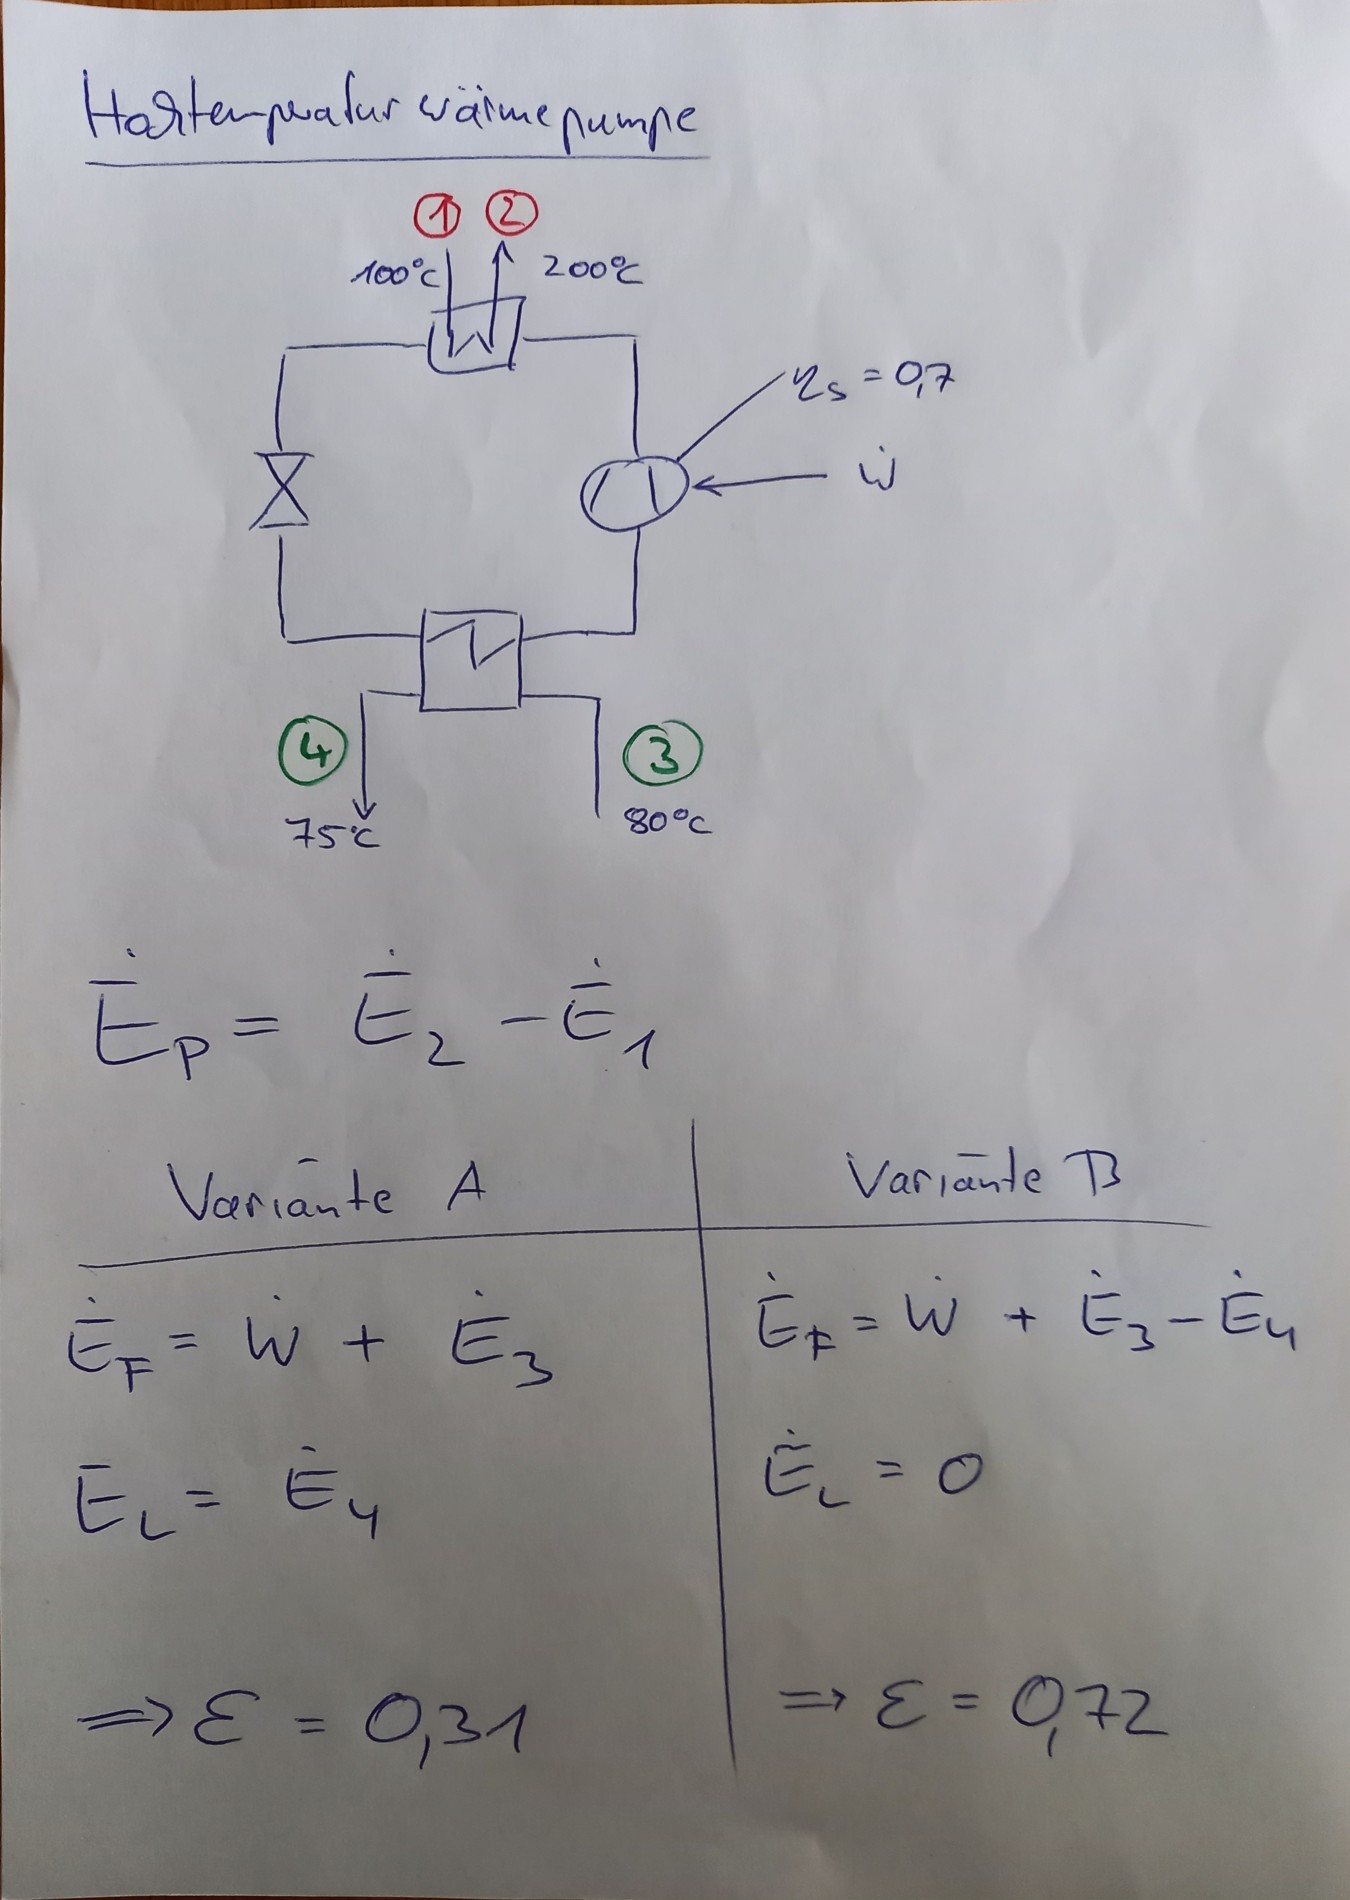 Hochtemperaturwärmepumpe
① ②
100°C 200°C
ηs = 0,7
Ẇ
④ ③
75°C 80°C
Ė_P = Ė_2 - Ė_1
Variante A
Variante B
Ė_F = Ẇ + Ė_3
Ė_F = Ẇ + Ė_3 - Ė_4
E_L = Ė_4
Ė_L = 0
⇒ ε = 0,31
⇒ ε = 0,72